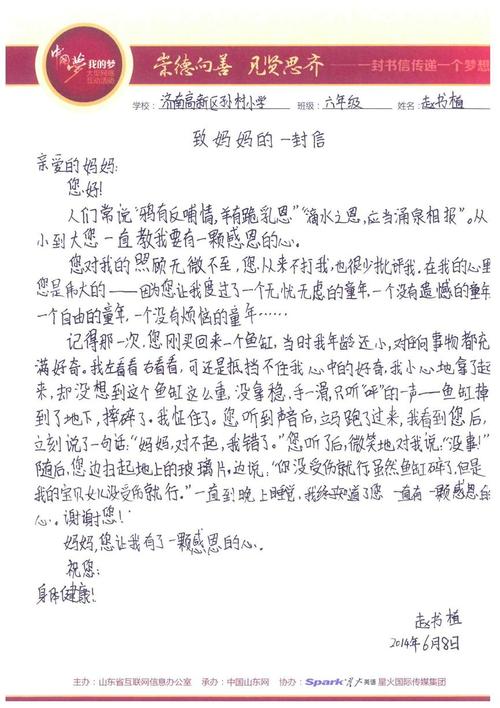 中国梦 我的梦
大型网络
互动活动
崇德向善 见贤思齐 ——一封书信传递一个梦想
学校：济南高新区孙村小学 班级：六年级 姓名：赵书植
致妈妈的一封信
亲爱的妈妈：
您好！
人们常说“鸦有反哺情，羊有跪乳恩”“滴水之恩，应当涌泉相报”。从
小到大您一直教我要有一颗感恩的心。
您对我的照顾无微不至，您从来不打我，也很少批评我。在我的心里
您是伟大的——因为您让我度过了一个无忧无虑的童年，一个没有遗憾的童年
一个自由的童年，一个没有烦恼的童年……
记得那一次，您刚买回来一个鱼缸，当时我年龄还小，对任何事物都充
满好奇。我左看看右看看，可还是抵挡不住我心中的好奇。我小心地拿了起
来，却没想到这个鱼缸这么重，没拿稳，手一滑，只听“呯”的一声——鱼缸掉
到了地下，摔碎了。我怔住了。您，听到声音后，立马跑了过来，我看到您后，
立刻说了一句话：“妈妈，对不起，我错了。”您，听了后，微笑地对我说：“没事！”
随后，您边扫起地上的玻璃片，边说：“你没受伤就行虽然鱼缸碎了，但是
我的宝贝女儿没受伤就行。”一直到晚上睡觉，我终于知道了您一直有一颗感恩的
心。谢谢您！
妈妈，您让我有了一颗感恩的心。
祝您：
身体健康！
赵书植
2014年6月8日
主办：山东省互联网信息办公室 承办：中国山东网 协办：Spark星火英语 星火国际传媒集团